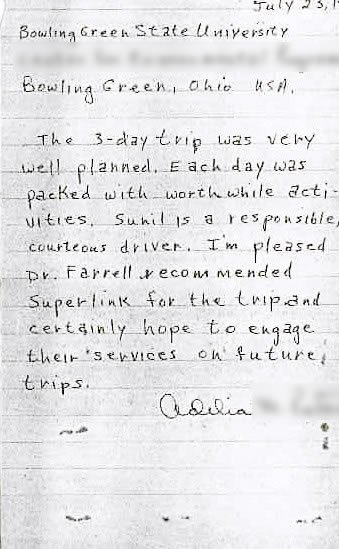 July 23, 1
Bowling Green State University
Bowling Green, Ohio USA.
The 3-day trip was very
well planned. Each day was
packed with worthwhile acti-
vities. Sunil is a responsible,
courteous driver. I'm pleased
Dr. Farrell recommended
Superlink for the trip and
certainly hope to engage
their services on future
trips.